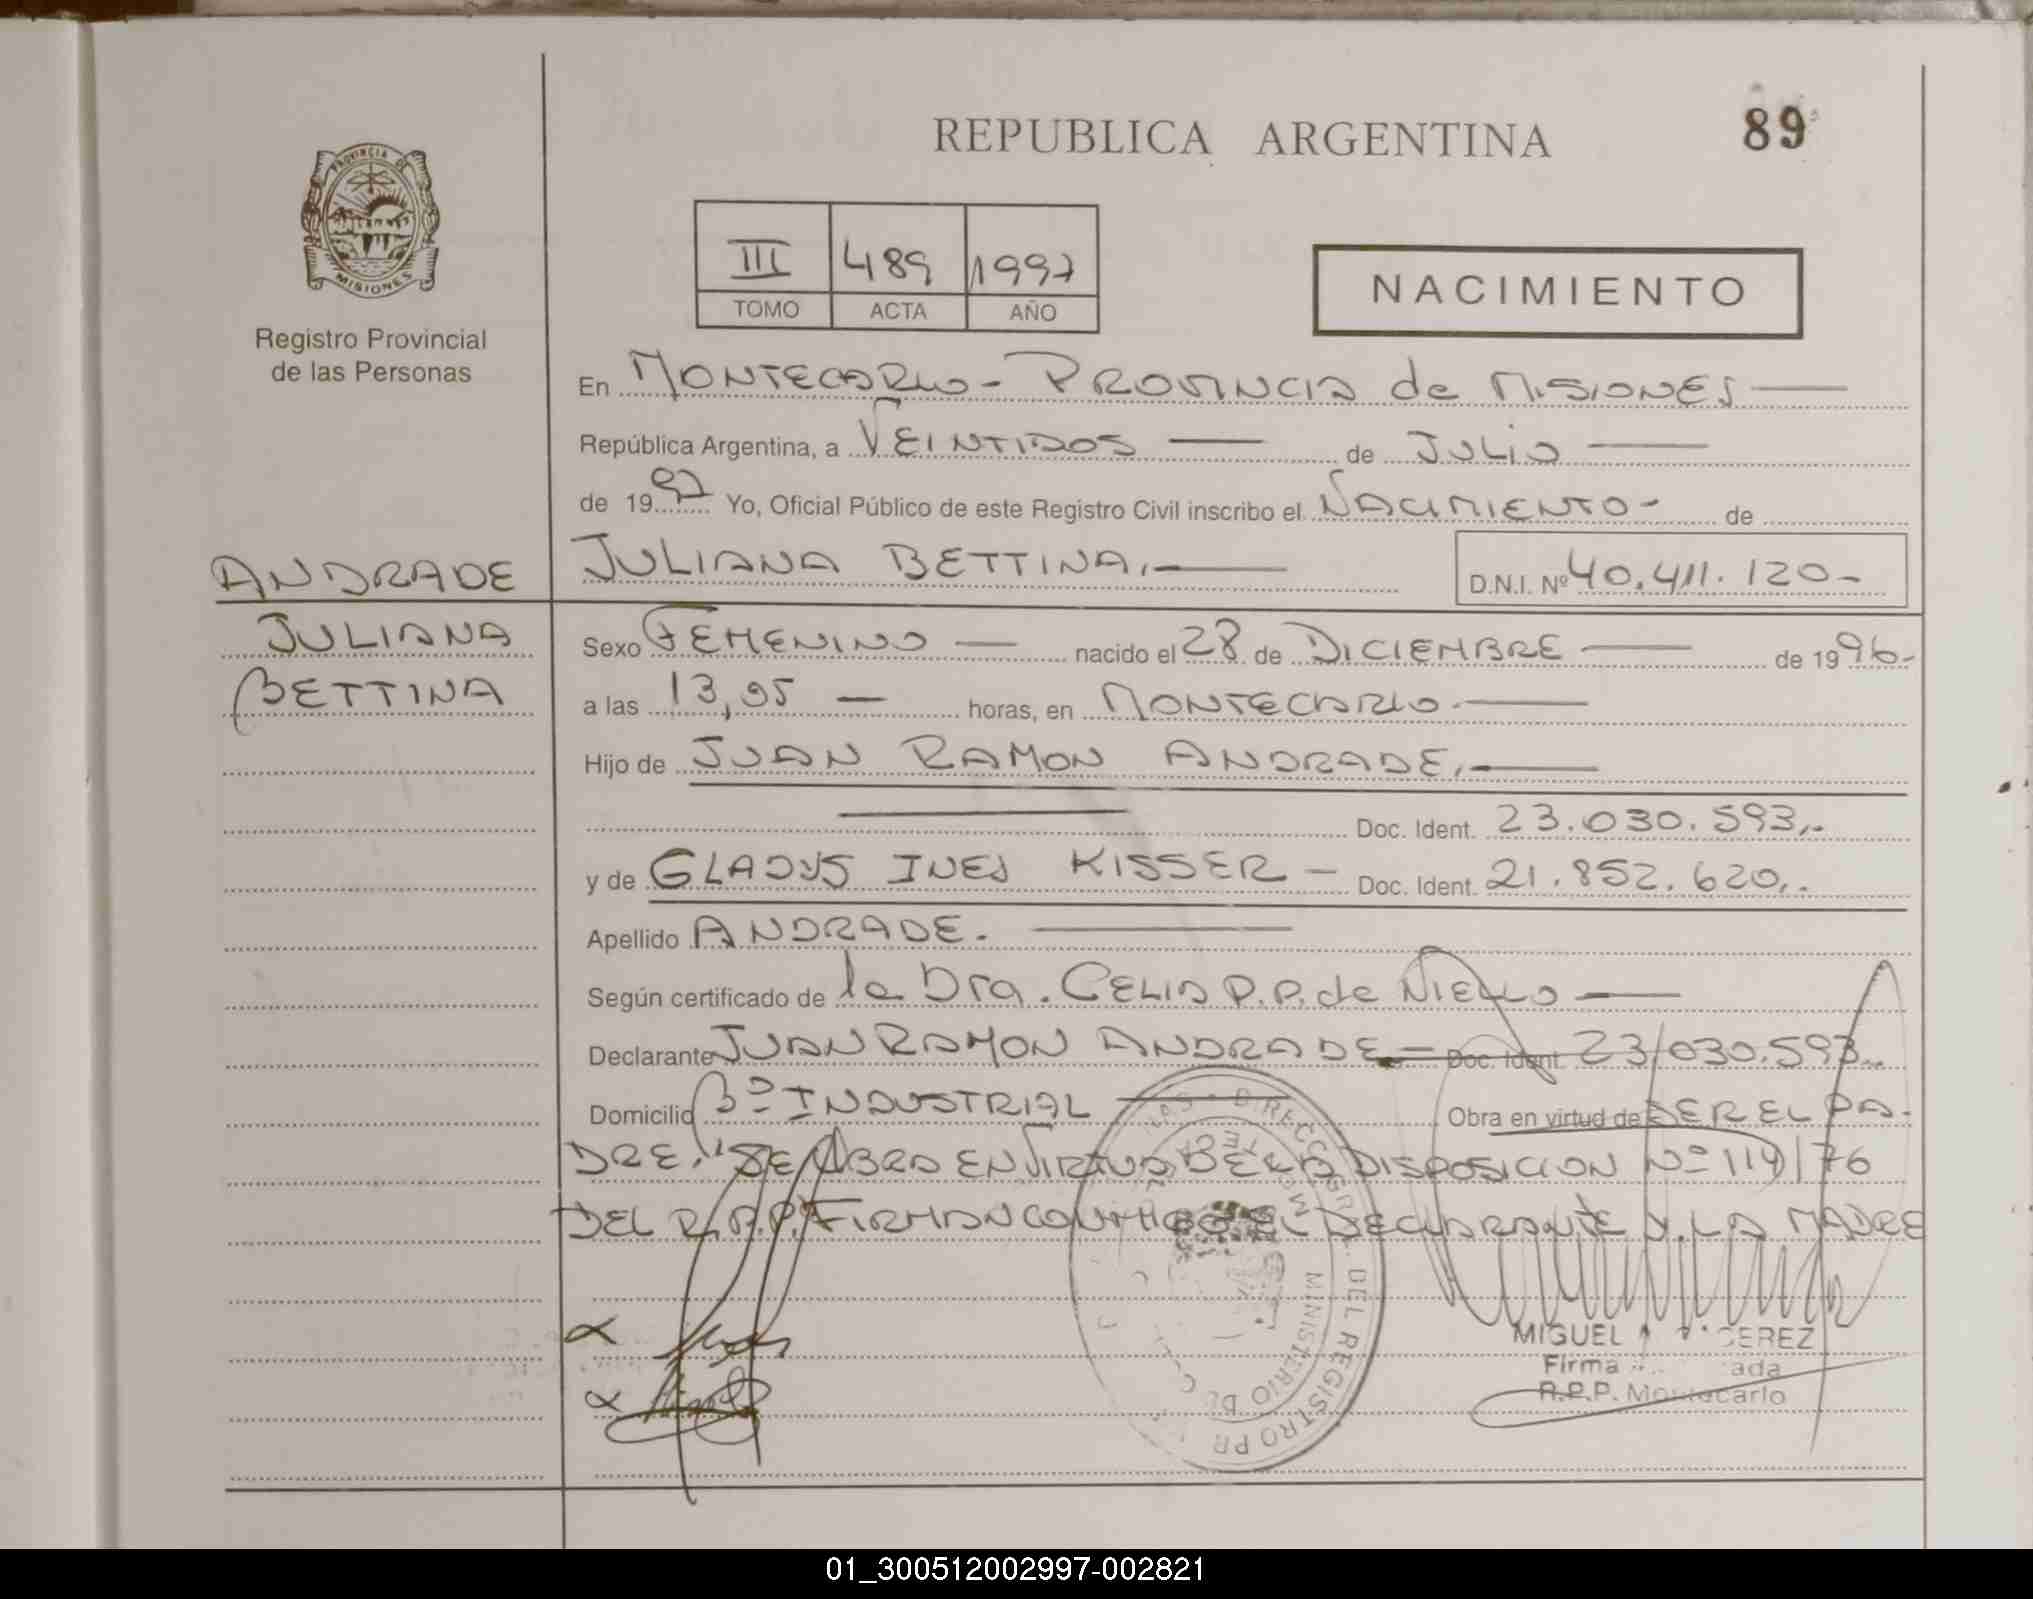 REPUBLICA ARGENTINA
89
PROVINCIA DE MISIONES
Registro Provincial
de las Personas
III 489 1997
TOMO ACTA AÑO
NACIMIENTO
En MONTECARLO - PROVINCIA de MISIONES
República Argentina, a VEINTIDOS de JULIO
de 1997 Yo, Oficial Público de este Registro Civil inscribo el NACIMIENTO - de
ANDRADE
JULIANA
BETTINA
JULIANA BETTINA.
D.N.I. Nº 40.411.120-
Sexo FEMENINO nacido el 28 de DICIEMBRE de 1996-
a las 13,05 horas, en MONTECARLO.
Hijo de JUAN RAMON ANDRADE.
Doc. Ident. 23.030.593.-
y de GLADYS INES KISSER - Doc. Ident. 21.852.620.
Apellido ANDRADE.
Según certificado de la Dra. CELIA P.P. de NIELLO
Declarante JUAN RAMON ANDRADE - Doc. Ident. 23.030.593
Domicilio Bº INDUSTRIAL Obra en virtud de SER EL PA-
DRE. "SE OBRA EN VIRTUD DE LA DISPOSICION Nº 119/76
DEL R.P.P. FIRMAN CONMIGO EL DECLARANTE Y LA MADRE
DIRECC GRAL DEL REGISTRO PR
MINISTERIO DE
MIGUEL CEREZ
Firma ada
R.P.P. Montecarlo
01_300512002997-002821